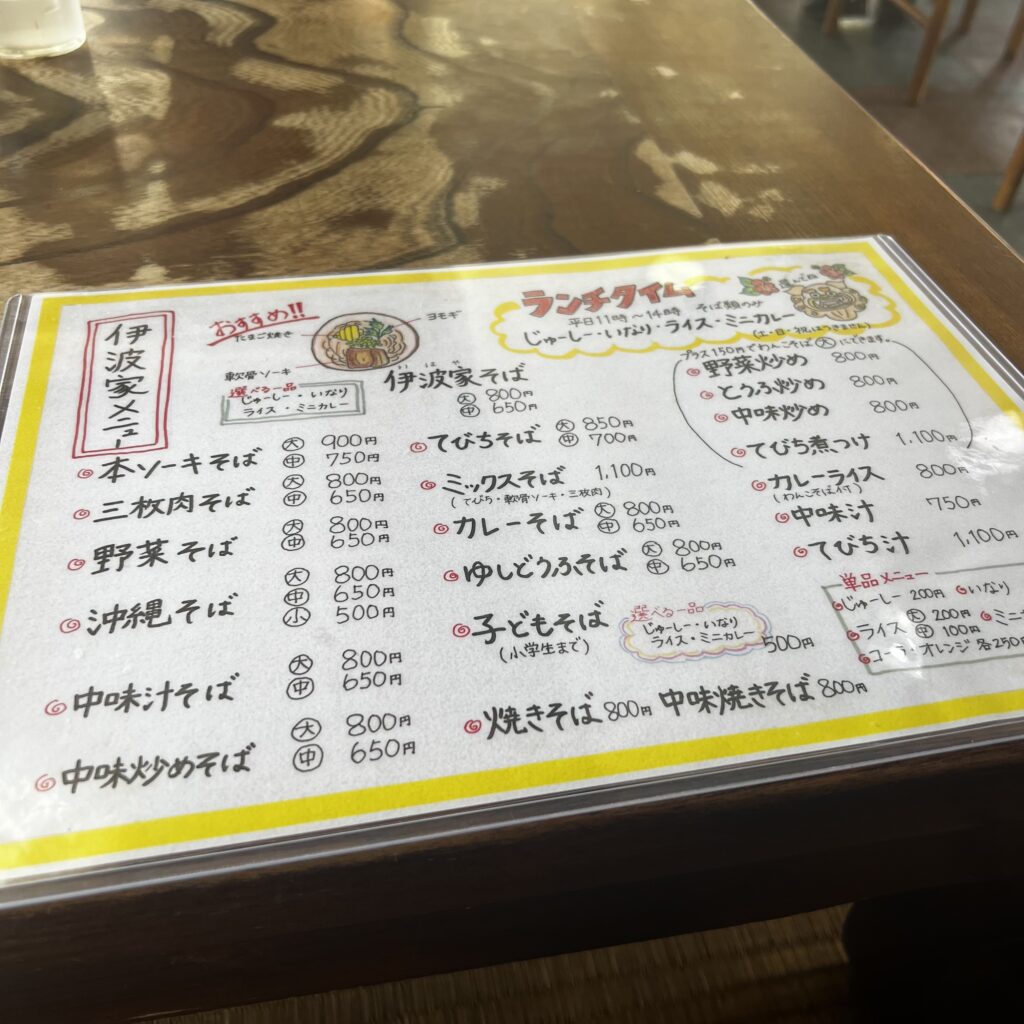 伊波家メニュー
おすすめ!!
たまご焼き
ヨモギ
軟骨ソーキ
選べる一品
じゅーしー・いなり
ライス・ミニカレー
いはげ
伊波家そば
大 800円
中 650円
本ソーキそば 大 900円
中 750円
三枚肉そば 大 800円
中 650円
野菜そば 大 800円
中 650円
沖縄そば 大 800円
中 650円
小 500円
中味汁そば 大 800円
中 650円
中味炒めそば 大 800円
中 650円
てびちそば 大 850円
中 700円
ミックスそば 1,100円
(てびち・軟骨ソーキ・三枚肉)
カレーそば 大 800円
中 650円
ゆしどうふそば 大 800円
中 650円
子どもそば
(小学生まで)
選べる一品
じゅーしー・いなり
ライス・ミニカレー
500円
焼きそば 800円 中味焼きそば 800円
ランチタイム
平日11時〜14時 そば類のみ
じゅーしー・いなり・ライス・ミニカレー
(土・日・祝はつきません)
プラス150円でわんこそば大にできます。
野菜炒め 800円
とうふ炒め 800円
中味炒め 800円
てびち煮つけ 1,100円
カレーライス 800円
(わんこそば付)
中味汁 750円
てびち汁 1,100円
単品メニュー
じゅーしー 200円 いなり
ライス 大 200円 ミニ
中 100円
コーラ・オレンジ 各250